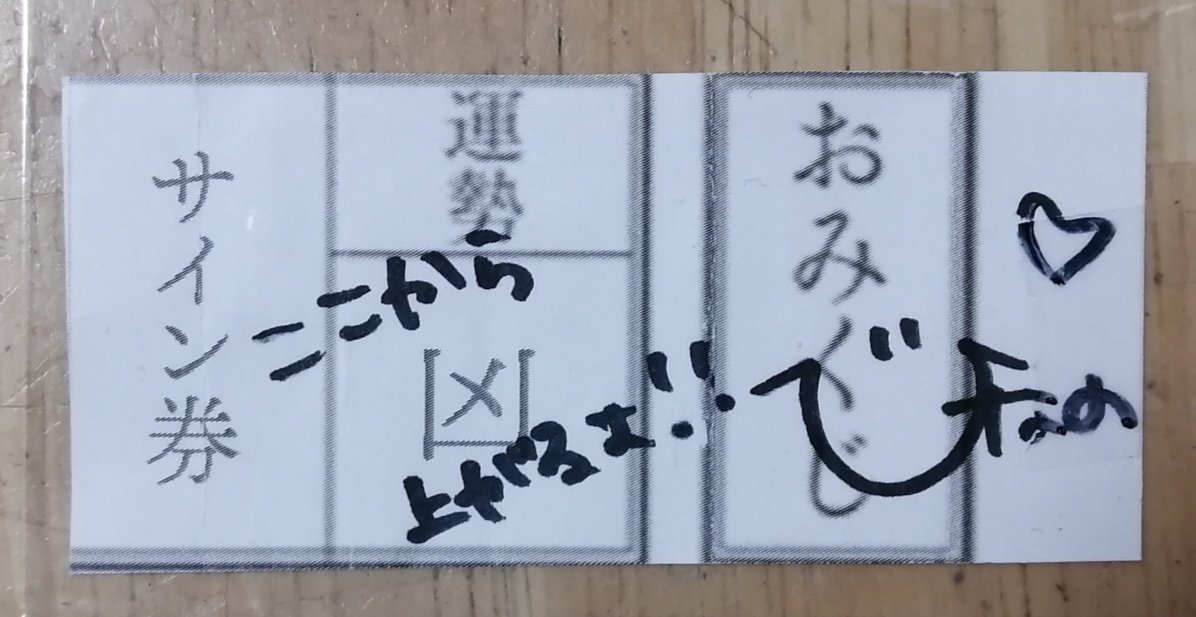 おみくじ
運勢
凶
サイン券
ここから
上がるよ!!
♡